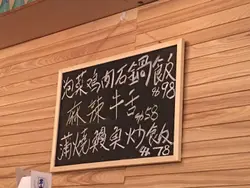 泡菜鸡肉石鍋飯 $98
麻辣牛舌 $58
蒲燒鰻魚炒飯 $78